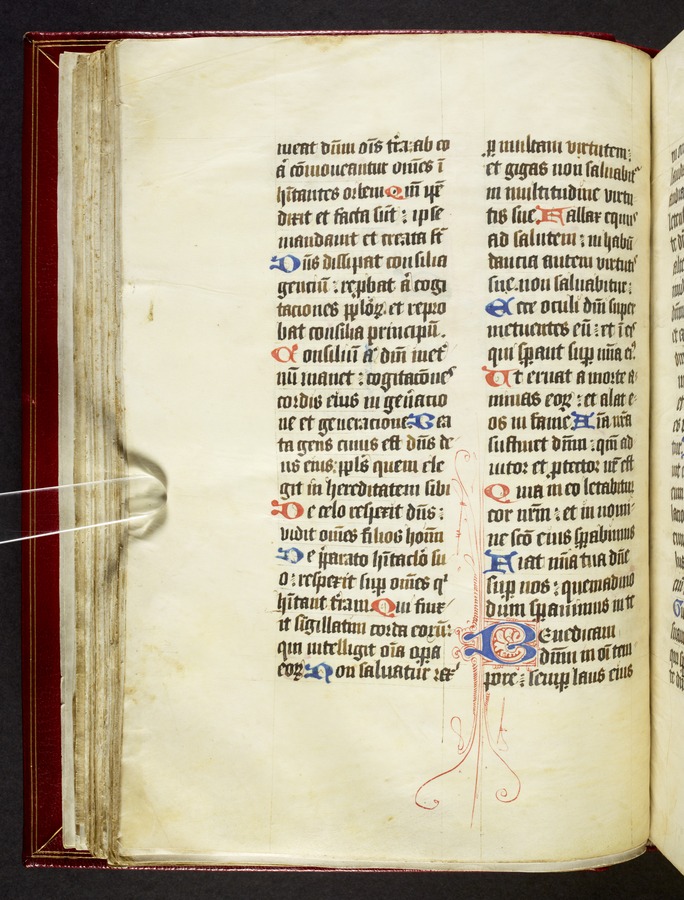 meat dūm oīs t̄ra: ab eo
a᷒ cōmoueantur om̄es ī
h̄itantes orbem Qm̄ ip̄e
dixit et facta sūt : ipse
mandauit et creata st̄
Dn̄s dissipat consilia
genciū : rep̄bat a᷒ cogi
taciones pp̄loꝝ. et repro
bat consilia principū.
Consiliū a᷒ dn̄i inet᷒
nū manet : cogitacōnes
cordis eius in gen̄atio
ne et generacione Bea
ta gens cuius est dn̄s de
us eius: pp̄ls quem ele
git in hereditatem sibi
De celo respexit dn̄s :
vidit om̄es filios homī
De p̄parato h̄itaclo su
o : respexit sup̱ om̄es qͥ
h̄itant t̄ram Qui finx
it sigillatim corda eorū :
qui intelligit oīa op̱a
eoꝝ Non saluatur rex
p̱ multam virtutem :
et gigas non saluabit᷒
in multitudine virtu
tis sue. Fallax equus
ad salutem : in habū
dancia autem virtutis
sue. non saluabitur :
Ecce oculi dn̄i super
metuentes eū : et ī eis
qui sp̱ant sup̱ mīa ei᷒.
Ut eruat a morte a
nimas eoꝝ : et alat e
os in fame. Aīa nr̄a
sustinet dūm : qm̄ ad
iutor et ꝓtector nr̄ est
Quia in eo letabitur
cor nr̄m : et in nomi
ne scō eius sp̱abimus
Fiat mīa tua dn̄e
sup̱ nos : quemadmo
dum sp̱auimus in te
Benedicam
dūm in oī tem
pore : semp̱ laus eius